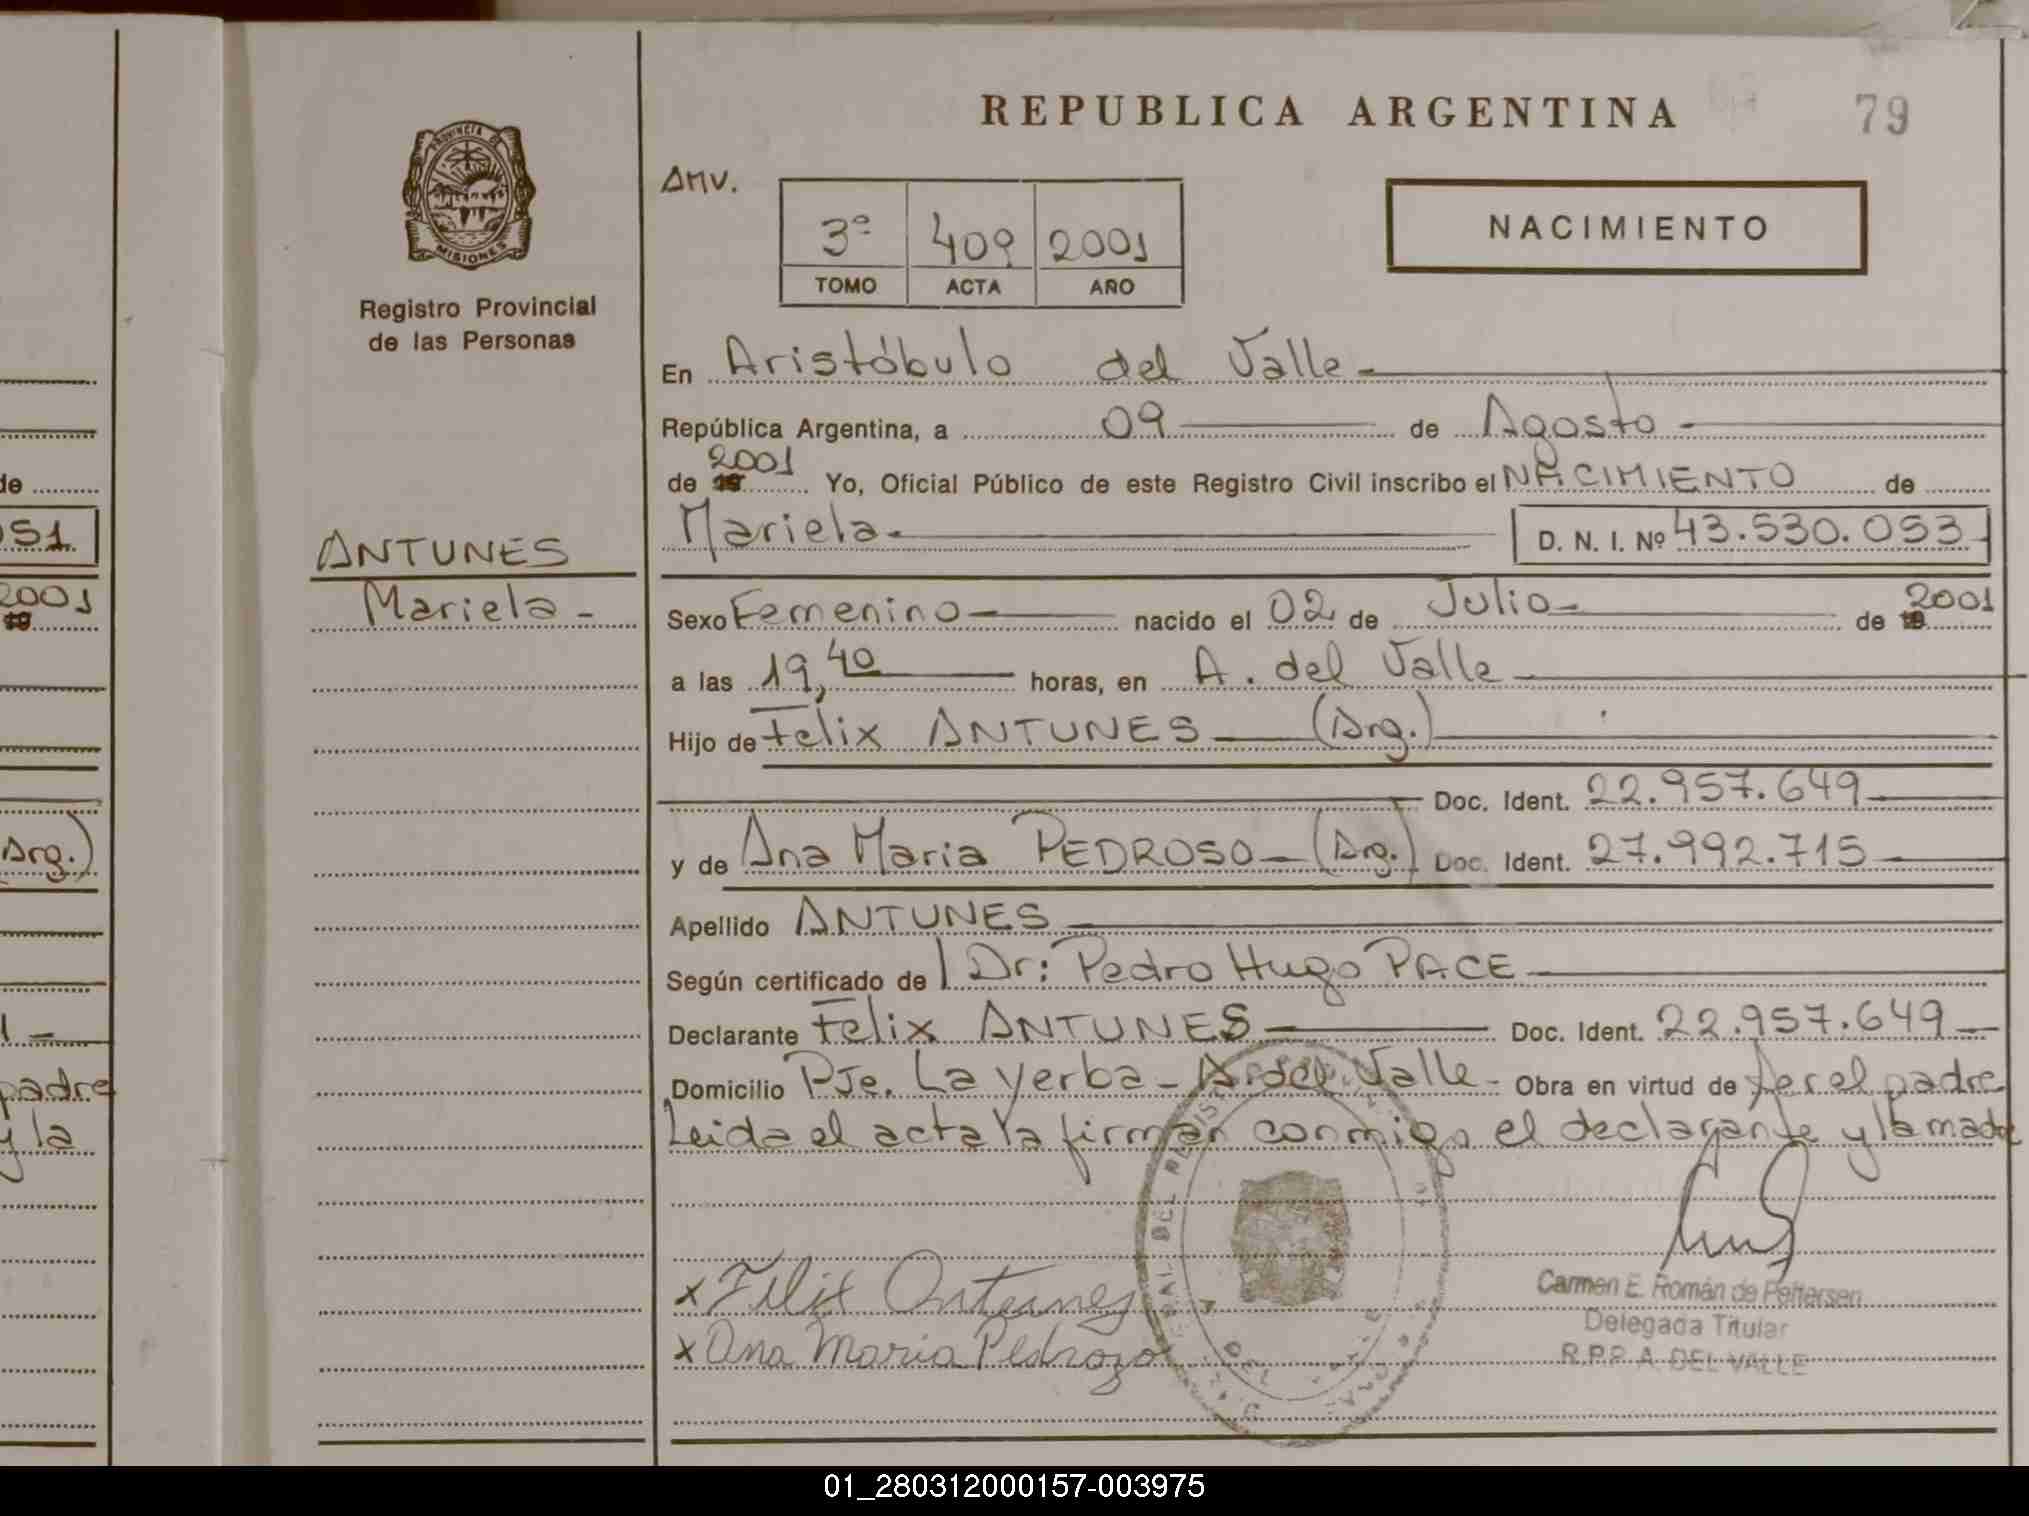 REPUBLICA ARGENTINA
79
Anv.
3º 409 2001
TOMO ACTA AÑO
NACIMIENTO
PROVINCIA DE
MISIONES
Registro Provincial
de las Personas
ANTUNES
Mariela -
En Aristóbulo del Valle
República Argentina, a 09 de Agosto
de 2001 Yo, Oficial Público de este Registro Civil inscribo el NACIMIENTO de
Mariela D. N. I. Nº 43.530.053
Sexo Femenino nacido el 02 de Julio de 2001
a las 19,40 horas, en A. del Valle
Hijo de Felix ANTUNES (Arg.)
Doc. Ident. 22.957.649
y de Ana Maria PEDROSO (Arg.) Doc. Ident. 27.992.715
Apellido ANTUNES
Según certificado de Dr: Pedro Hugo PACE
Declarante Felix ANTUNES Doc. Ident. 22.957.649
Domicilio Pje. La Yerba - A. del Valle - Obra en virtud de ser el padre
Leida el acta la firman conmigo el declarante y la madre
x Felix Antunes
x Ana Maria Pedrozo
Carmen E. Román de Pettersen
Delegada Titular
R.P.P. A. DEL VALLE
de
051
2001
Arg.)
padre
y la
01_280312000157-003975